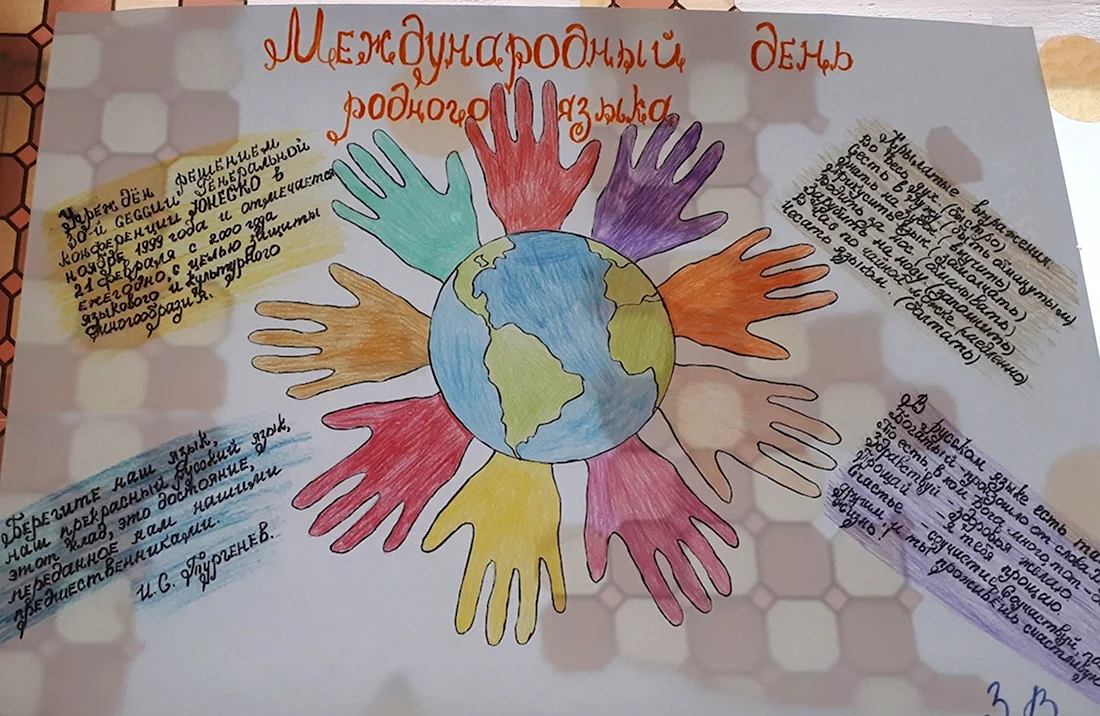 Международный день
родного языка
Учреждён решением
30-й сессии Генеральной
конференции ЮНЕСКО в
ноябре 1999 года и отмечается
21 февраля с 2000 года
ежегодно, с целью защиты
языкового и культурного
многообразия.
Крылатые выражения
Во весь дух (быстро)
(быть обманутым)
(замолчать)
Прикусить язык
Зарубить на носу (запомнить)
В час по чайной (
Чесать языком. (болтать)
Берегите наш язык,
наш прекрасный русский язык,
этот клад, это достояние,
переданное нам нашими
предшественниками.
И.С. Тургенев.
В русском языке есть
Богатый - произошло от слова
То есть, в ком Бога много тот -
Здравствуй - здоровья желаю.
Прощай - я тебя прощаю.
Счастье - соучастий (соучаствуй,
другим и ты проживёшь
3 В